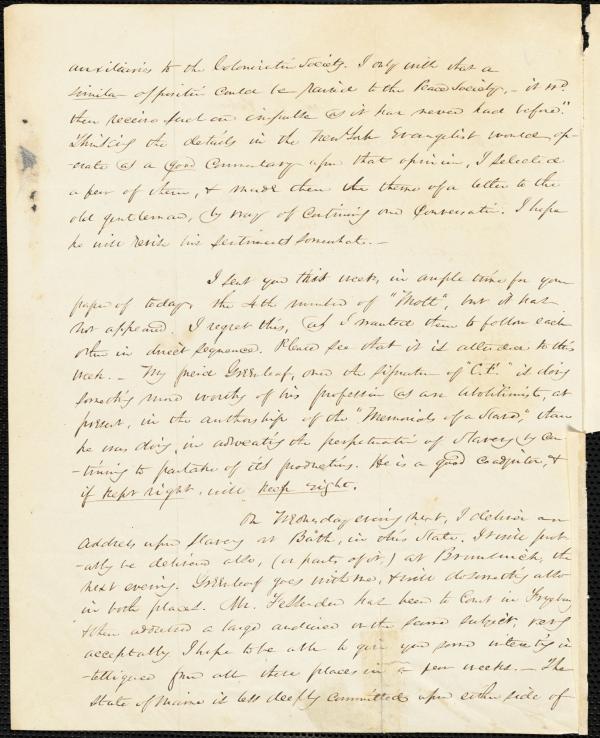 auxiliaries to the Colonization Society. I only wish that a
similar opposition could be raised to the Peace Society, - it wd.
then receive such an impulse as it has never had before."
Thinking the details in the New York Evangelist would op-
-erate as a good Commentary upon that opinion, I selected
a few of them, & made them the theme of a letter to the
old gentleman, by way of continuing our Conversation. I hope
he will revise his sentiments somewhat. -
I sent you this week, in ample time for your
paper of today, the 4th number of "Mott", but it has
not appeared. I regret this, as I wanted them to follow each
other in direct sequence. Please see that it is attended to this
week. - My friend Greenleaf, over the signature of "C.E." is doing
something more worthy of his profession as an Abolitionist, at
present, in the authorship of the "Memorials of a Slave," than
he was doing, in advocating the perpetuation of Slavery by con-
-tinuing to partake of its productions. He is a good coadjutor, &
if kept right, will keep right.
On Wednesday evening next, I deliver an
Address upon Slavery at Bath, in this State. It will prob-
-ably be delivered also, (or parts of it,) at Brunswick, the
next evening. Greenleaf goes with me, & will do something also
in both places. Mr. Fessenden has been to Court in Fryeburg
& then addressed a large audience on the same subject, very
acceptably. I hope to be able to give you some interesting in
-telligence from all these places in a few weeks. - The
State of Maine is less deeply committed upon either side of